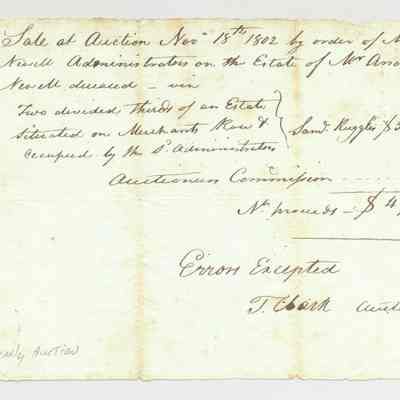 Sale at Auction Novr 18th 1802 by order of M
Newell Administrators on the Estate of Mr
Newell deceased – viz
Two divided thirds of an Estate
situated on Merchants Row &
occupied by the sd. Administrators
Saml. Ruggles $3
Auctioneers Commission
Nt. proceeds – $4
Errors Excepted
T. Clark Aucti
Auction